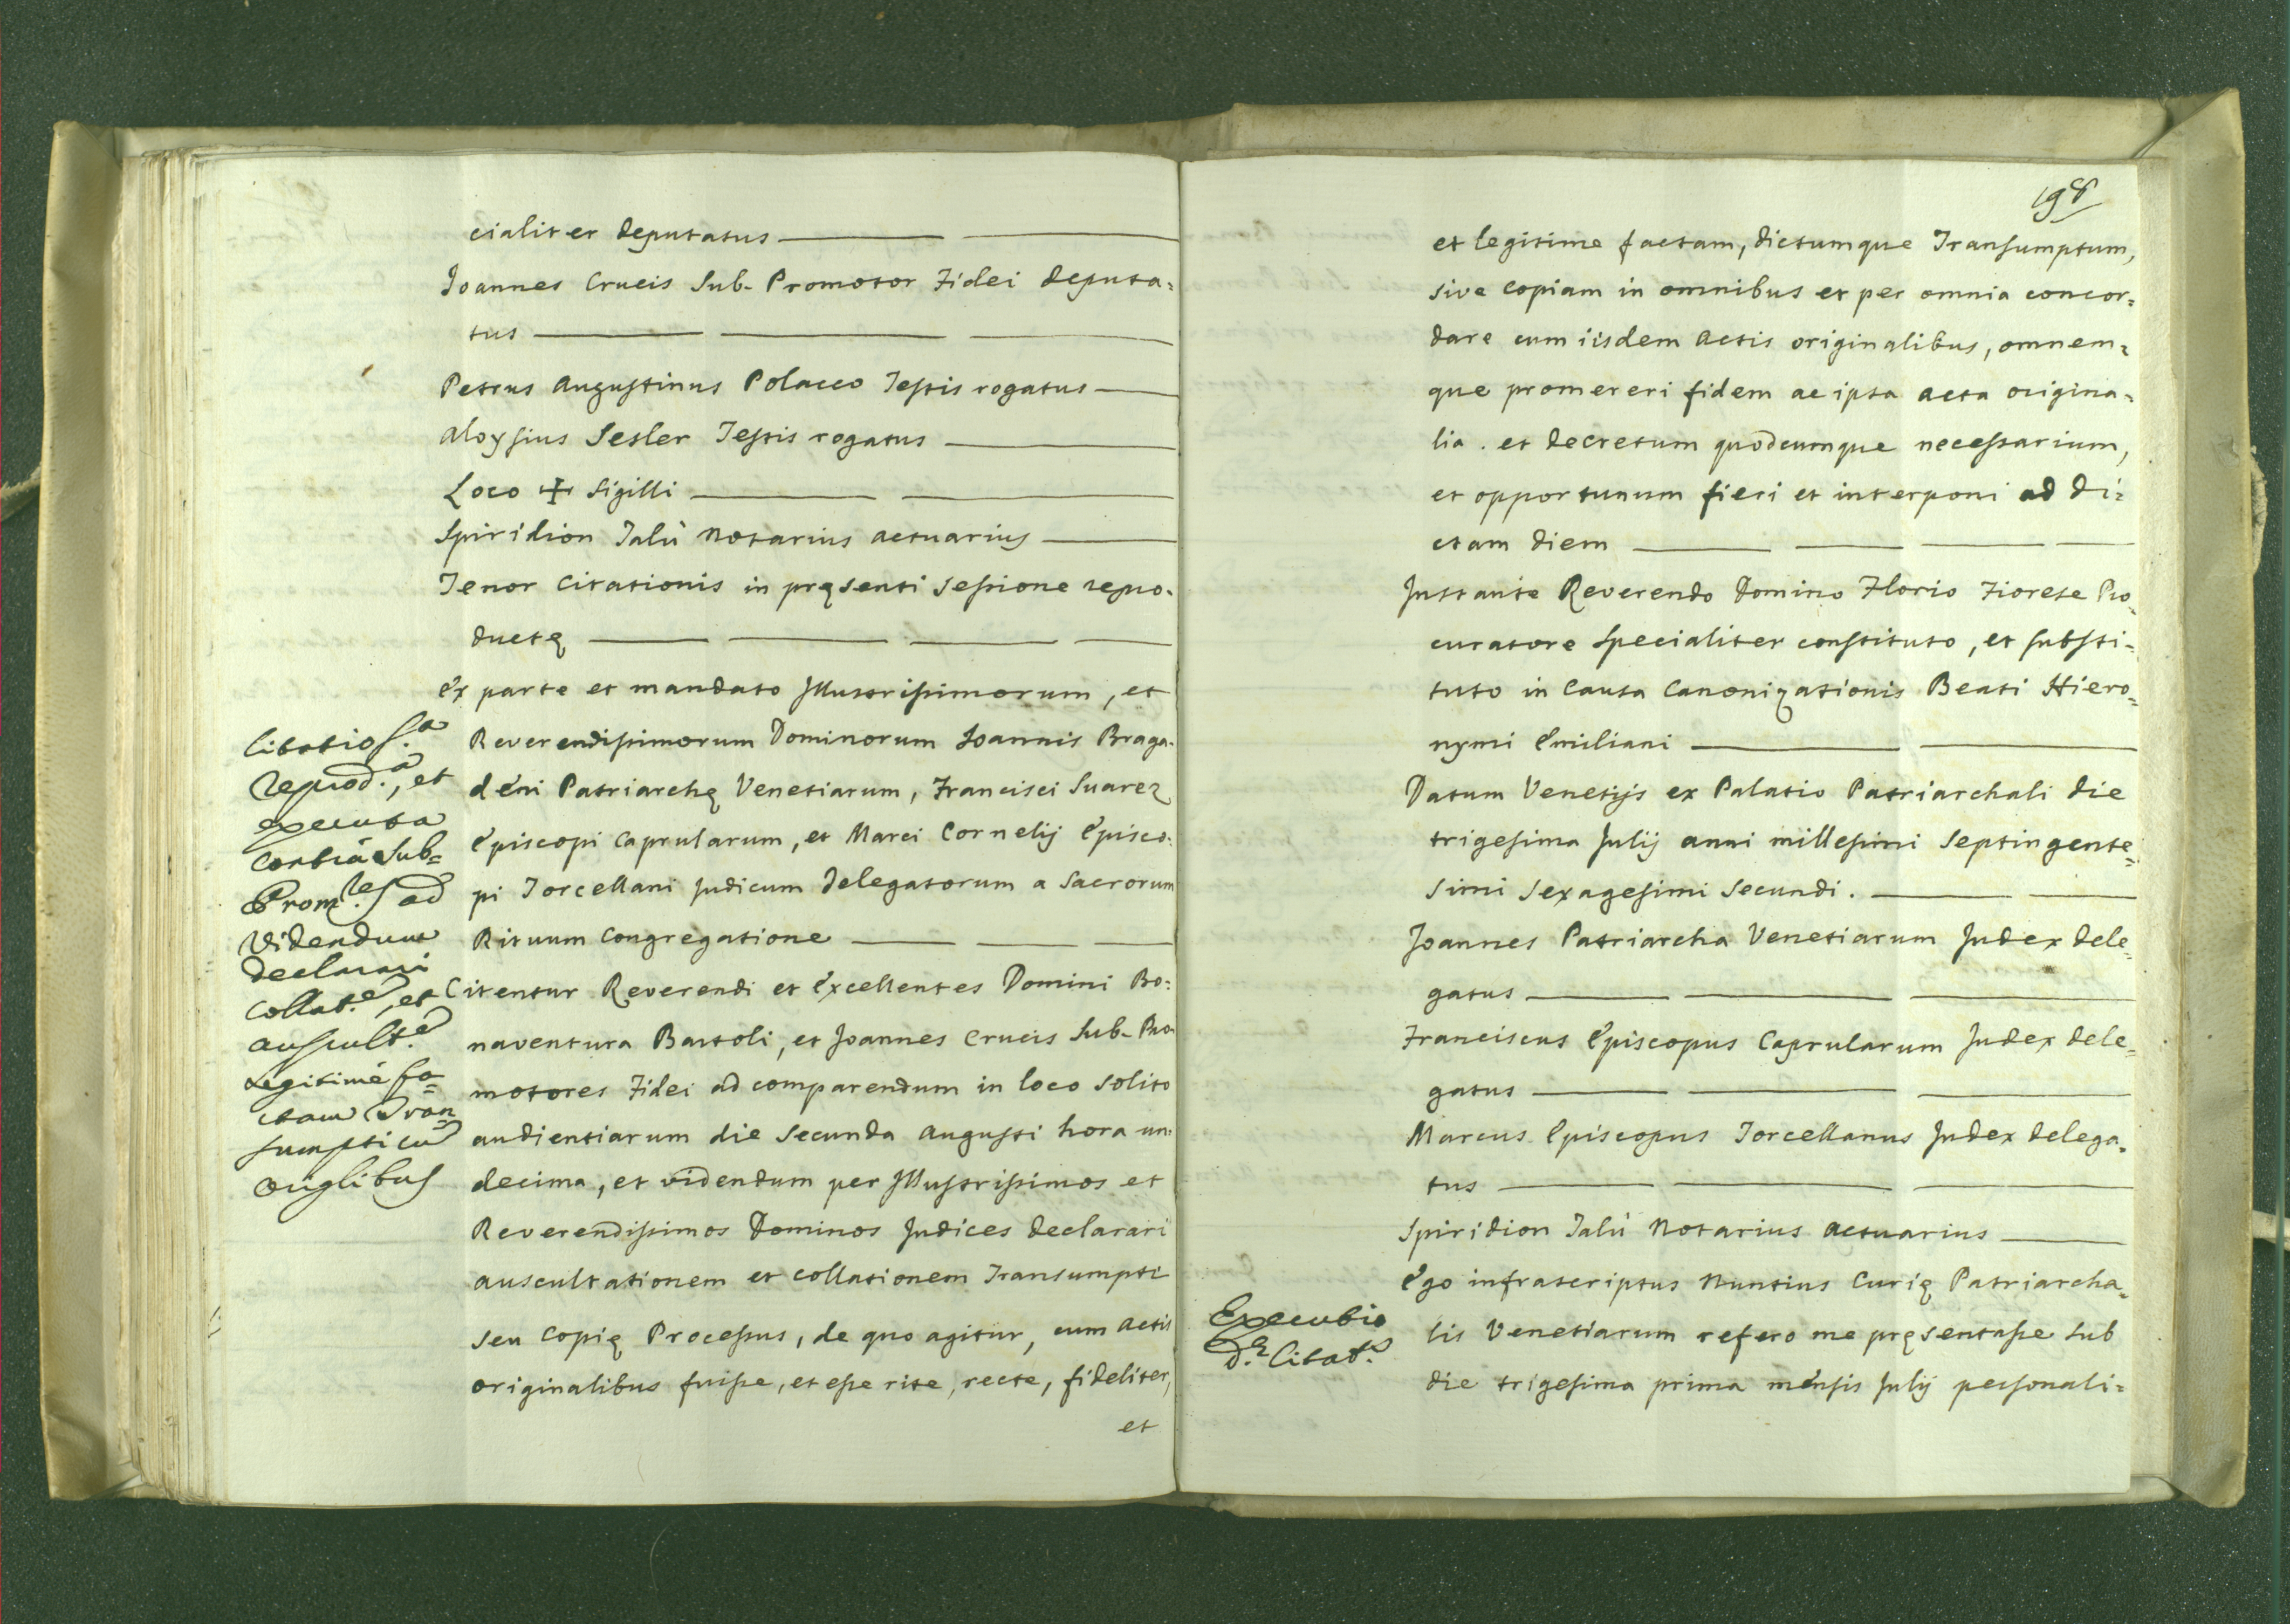 cialiter deputatus
Joannes Crucis Sub-Promotor Fidei deputa=
tus
Petrus Augustinus Polacco Testis rogatus
Aloysius Sesler Testis rogatus
Loco ✠ Sigilli
Spiridion Talù Notarius Actuarius
Tenor Citationis in pręsenti Sessione repro=
ductę
Ex parte et mandato Illustrissimorum, et
Reverendissimorum Dominorum Joannis Braga=
deni Patriarchę Venetiarum, Francisci Suarez
Episcopi Caprularum, et Marci Cornelij Episco=
pi Torcellani Judicum Delegatorum a Sacrorum
Rituum Congregatione
Citatio s.a
reprod.a, et
executa
contrà Sub=
Prom.res ad
videndum
declarari
collat.e, et
auscult.e
legitimè fa=
ctam Tran=
sumpti cū
originlibus
Citentur Reverendi et Excellentes Domini Bo=
naventura Bartoli, et Joannes Crucis Sub-Pro=
motores Fidei ad comparendum in loco solito
audientiarum die secunda Augusti hora un=
decima, et videndum per Illustrissimos et
Reverendissimos Dominos Judices declarari
auscultationem et collationem Transumpti
seu Copię Processus, de quo agitur, cum Actis
originalibus fuisse, et esse rite, recte, fideliter,
et
198
et legitime factam, dictumque Transumptum,
sive copiam in omnibus et per omnia concor=
dare cum iisdem Actis originalibus, omnem=
que promereri fidem ac ipsa acta origina=
lia. et decretum quodcumque necessarium,
et opportunum fieri et interponi ad di=
ctam diem
Instante Reverendo Domino Florio Fiorese Pro=
curatore specialiter constituto, et substi=
tuto in Causa Canonizationis Beati Hiero=
nymi Emiliani
Datum Venetijs ex Palatio Patriarchali die
trigesima Julij anni millesimi Septingente=
simi sexagesimi secundi.
Joannes Patriarcha Venetiarum Judex dele=
gatus
Franciscus Episcopus Caprularum Judex dele=
gatus
Marcus Episcopus Torcellanus Judex delega=
tus
Spiridion Talù Notarius Actuarius
Executio
d.ę Citat.s
Ego infrascriptus Nuntius Curię Patriarcha=
lis Venetiarum refero me pręsentasse sub
die trigesima prima mensis Julij personali=